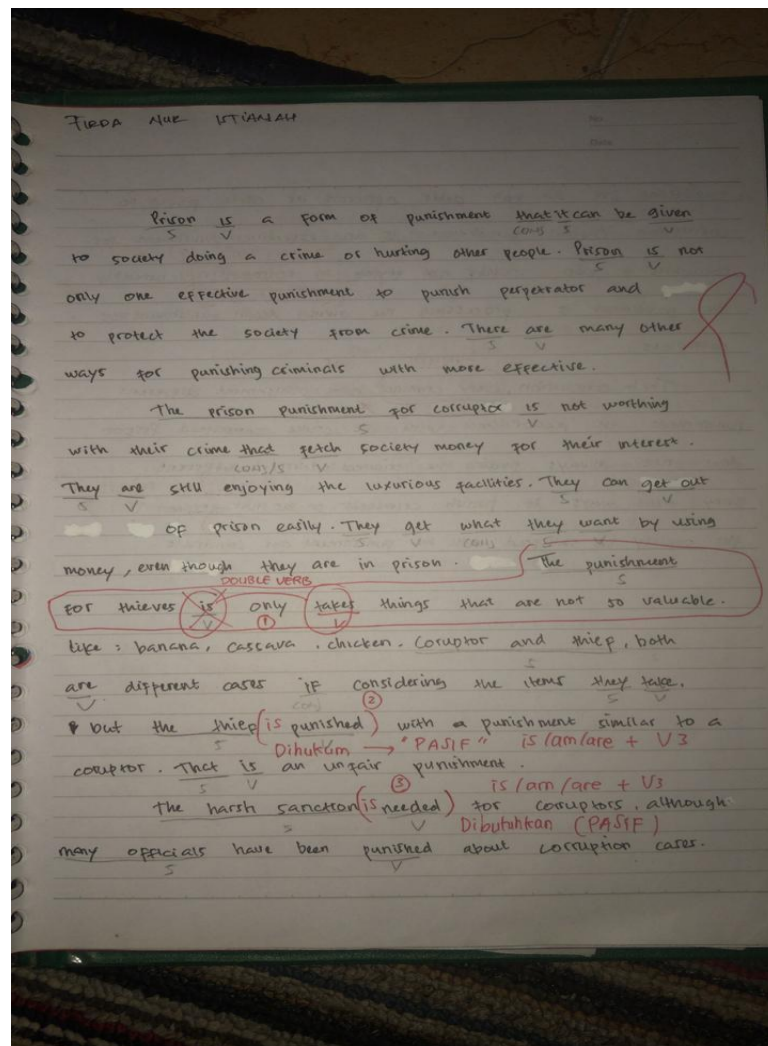 FIRDA NUR ISTIANAH
No
Date
Prison is a form of punishment that it can be given
S V CONJ S V
to society doing a crime or hurting other people. Prison is not
S V
only one effective punishment to punish perpetrator and
to protect the society from crime. There are many other
S V
ways for punishing criminals with more effective.
The prison punishment for corruptor is not worthing
S V
with their crime that fetch society money for their interest.
CONJ/S V
They are still enjoying the luxurious facilities. They can get out
S V S V
of prison easily. They get what they want by using
S V CONJ S V
money, even though they are in prison. The punishment
DOUBLE VERB S
for thieves is only takes things that are not so valuable.
V ① V
like : banana, cassava, chicken. Coruptor and thief, both
S
are different cases if considering the items they take.
V CONJ ② S V
but the thief (is punished) with a punishment similar to a
S Dihukum → "PASIF" is/am/are + V3
coruptor. That is an unfair punishment.
S V ③ is/am/are + V3
The harsh sanction (is needed) for corruptors, although
S V Dibutuhkan (PASIF)
many officials have been punished about corruption cases.
S V